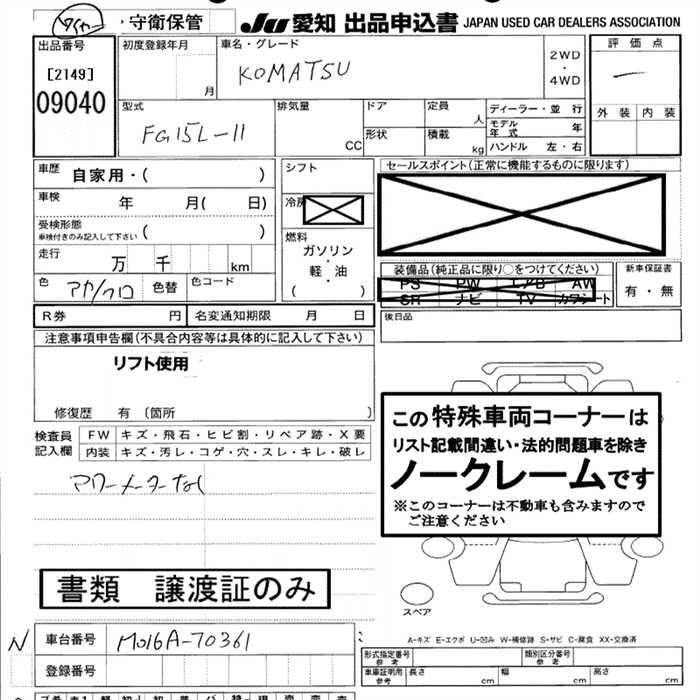 ・守衛保管 JU 愛知 出品申込書 JAPAN USED CAR DEALERS ASSOCIATION
出品番号
[2149]
09040
初度登録年月
月
車名・グレード
KOMATSU
2WD
・
4WD
評価点
一
外装 内装
型式
FG15L-11
排気量
CC
ドア
形状
定員
人
積載
kg
ディーラー・並 行
モデル年式 年
ハンドル 左・右
車歴 自家用・( )
車検 年 月( 日)
受検形態
車検付きのみ記入して下さい ( )
走行 万 千 km
色 アカ/クロ 色替 色コード
シフト
冷房
燃料
ガソリン
・
軽・油
( )
セールスポイント(正常に機能するものに限ります)
装備品(純正品に限り○をつけてください)
PS PW エアB AW
SR ナビ TV カワシート
新車保証書
有・無
R券 円 名変通知期限 月 日
後日品
注意事項申告欄(不具合内容等は具体的に記入して下さい)
リフト使用
修復歴 有 〔箇所 〕
検査員
記入欄
FW キズ・飛石・ヒビ割・リペア跡・X要
内装 キズ・汚レ・コゲ・穴・スレ・キレ・破レ
アワーメーターなし
この特殊車両コーナーは
リスト記載間違い・法的問題車を除き
ノークレームです
※このコーナーは不動車も含みますので
ご注意ください
スペア
書類 譲渡証のみ
A-キズ E-エクボ U-凹み W-補修跡 S-サビ C-腐食 XX-交換済
N 車台番号 M016A-70361
登録番号
形式指定番号
参考
類別区分番号
参考
車庫証明用
参考
長さ cm 幅 cm 高さ cm